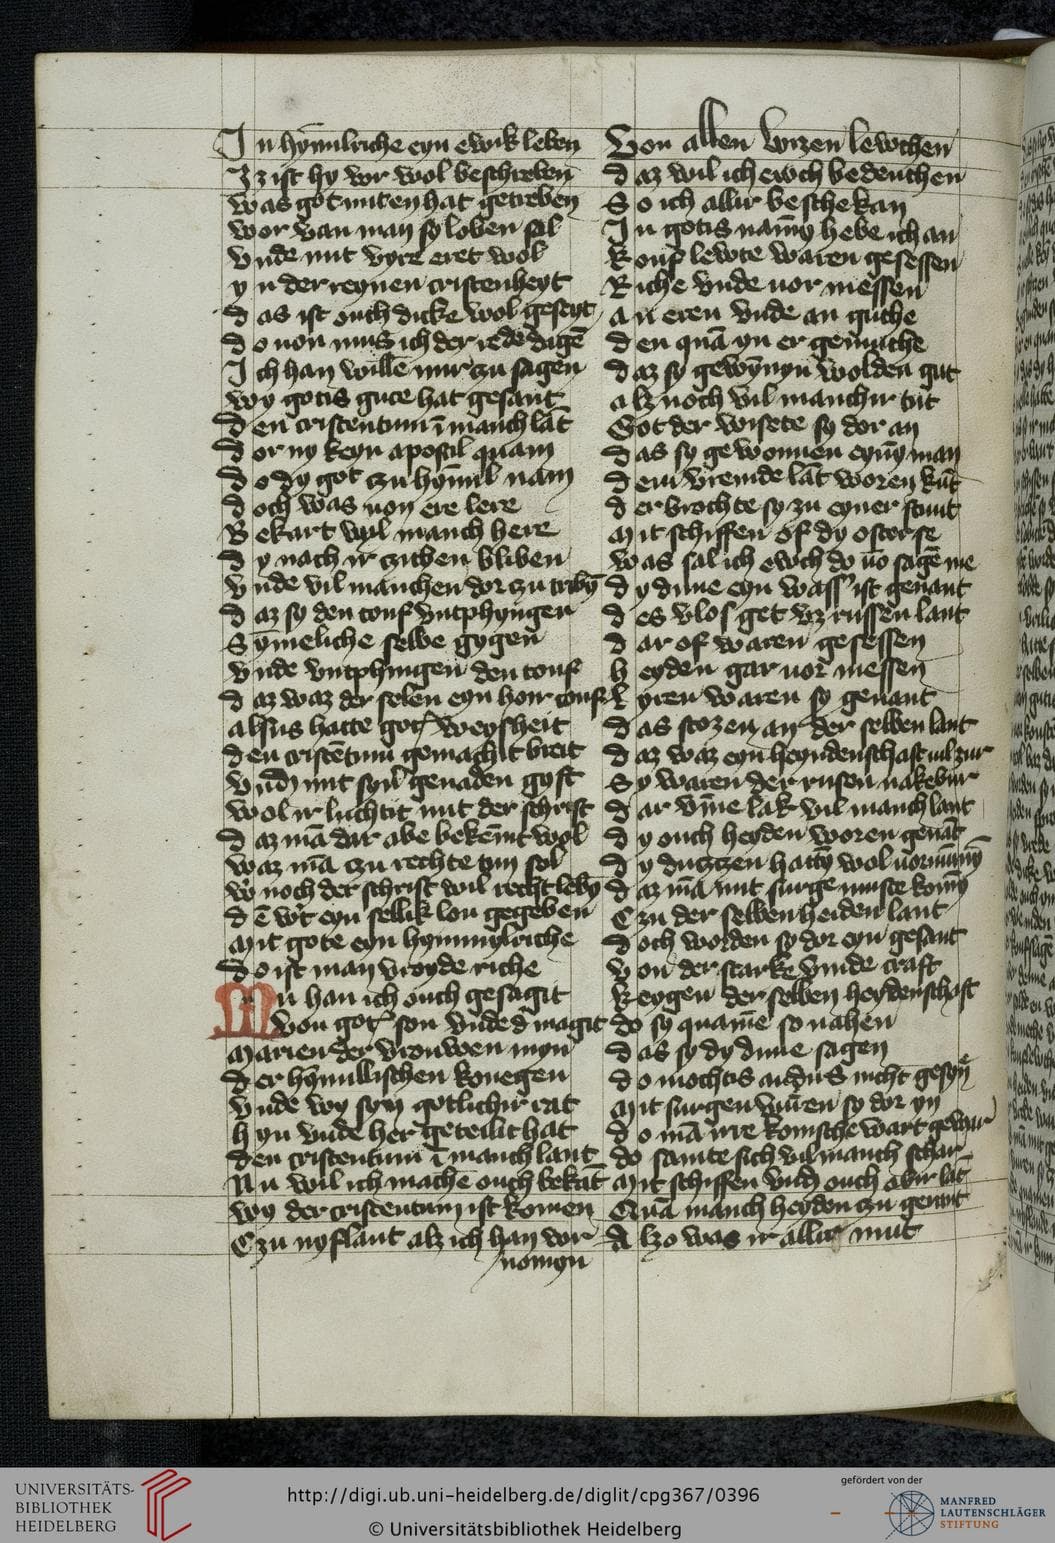 In hȳmilriche eyn ewik leben
Iz ist hy vor wol beschreben
was got mit en hat getreben
wor van man sy loben sal
vnde mit vyre eret wol
yn der reynen cristenheyt
das ist ouch dicke wol geseyt
do von mus ich der rede dagē
Ich han willē mir zu sagen
wy gotis gute hat gesant
den cristentum ī manch lāt
dor ny keyn apostil quam
do dy got czu hȳmil nam
doch was von ere lere
Bekart vyl manch here
dy nach ir zichen bliben
vnde vil manchen dor czu tribȳ
daz sy den touf vntphyngen
Symeliche selbe gygen
vnde vntphingen den touf
daz waz der selen eyn hoir touf
alsus hatte got weysheit
den cristētum gemachit breit
vnd mit syn genaden gyst
wol ir luchtit mit der schrift
daz mā dar abe bekēnt wol
waz mā czu rechte tun sol
wer noch der schrift wil recht lebȳ
dē wirt eyn sellik lon gegeben
Mit gote eyn hymmylriche
do ist man vroyde riche
Nu han ich ouch gesagit
von got son vnde d magit
Marien der vrouwen myn
der hȳmillischen konegen
vnde wy syn gotlichir rat
hyn vnde her geteilit hat
den cristentum ī manch lant
Nu wil ich machē ouch bekāt
wy der cristentum ist komen
Czu nyflant alz ich han vor
nomyn
Von allen wizen lewthen
daz wil ich ewch bedeuthen
So ich allir beschekan
In gotis namȳ hebe ich an
Kouf lewte waren gesessen
Riche vnde vor messen
an eren vnde an guthe
den quā yn er gemuthe
daz sy gewȳnyn wolden gut
alz noch vil manchir tut
Got der wisete sy dor an
das sy gewonnen eynȳ man
dem vremde lāt woren kūt
der brochte sy zu eyner stunt
Mit schiffen of dy ostorse
was sal ich ewch do vō sagē me
dy dune eyn wasser ist genant
des vlos get vz russen lant
dar of waren gesessen
heyden gar vor messen
lyren waren sy genant
das stozen an der selben lant
daz waz eyn heyndenschaft vil zur
Sy waren der rusen nakebur
dar vm̄e lak vil manch lant
dy ouch heyden woren genāt
dy dutzzen hattȳ wol vornūmȳ
daz mā mit surge muste komȳ
Czu der selben heiden lant
doch worden sy dor eyn gesant
von der starke winde craft
keygen der selben heydenschaft
do sy quamē so nahen
das sy dy dune sagen
do mochtis andirs nicht gesyn
Mit surgen vuren sy dor yn
do mā irre komsche wart gewar
do samte sich vil manch schar
Mit schiffen vnd ouch abir lāt
Quā manch heyden czu gerant
Alzo was ir allir mut
UNIVERSITÄTS-
BIBLIOTHEK
HEIDELBERG
http://digi.ub.uni-heidelberg.de/diglit/cpg367/0396
© Universitätsbibliothek Heidelberg
gefördert von der
MANFRED
LAUTENSCHLÄGER
STIFTUNG